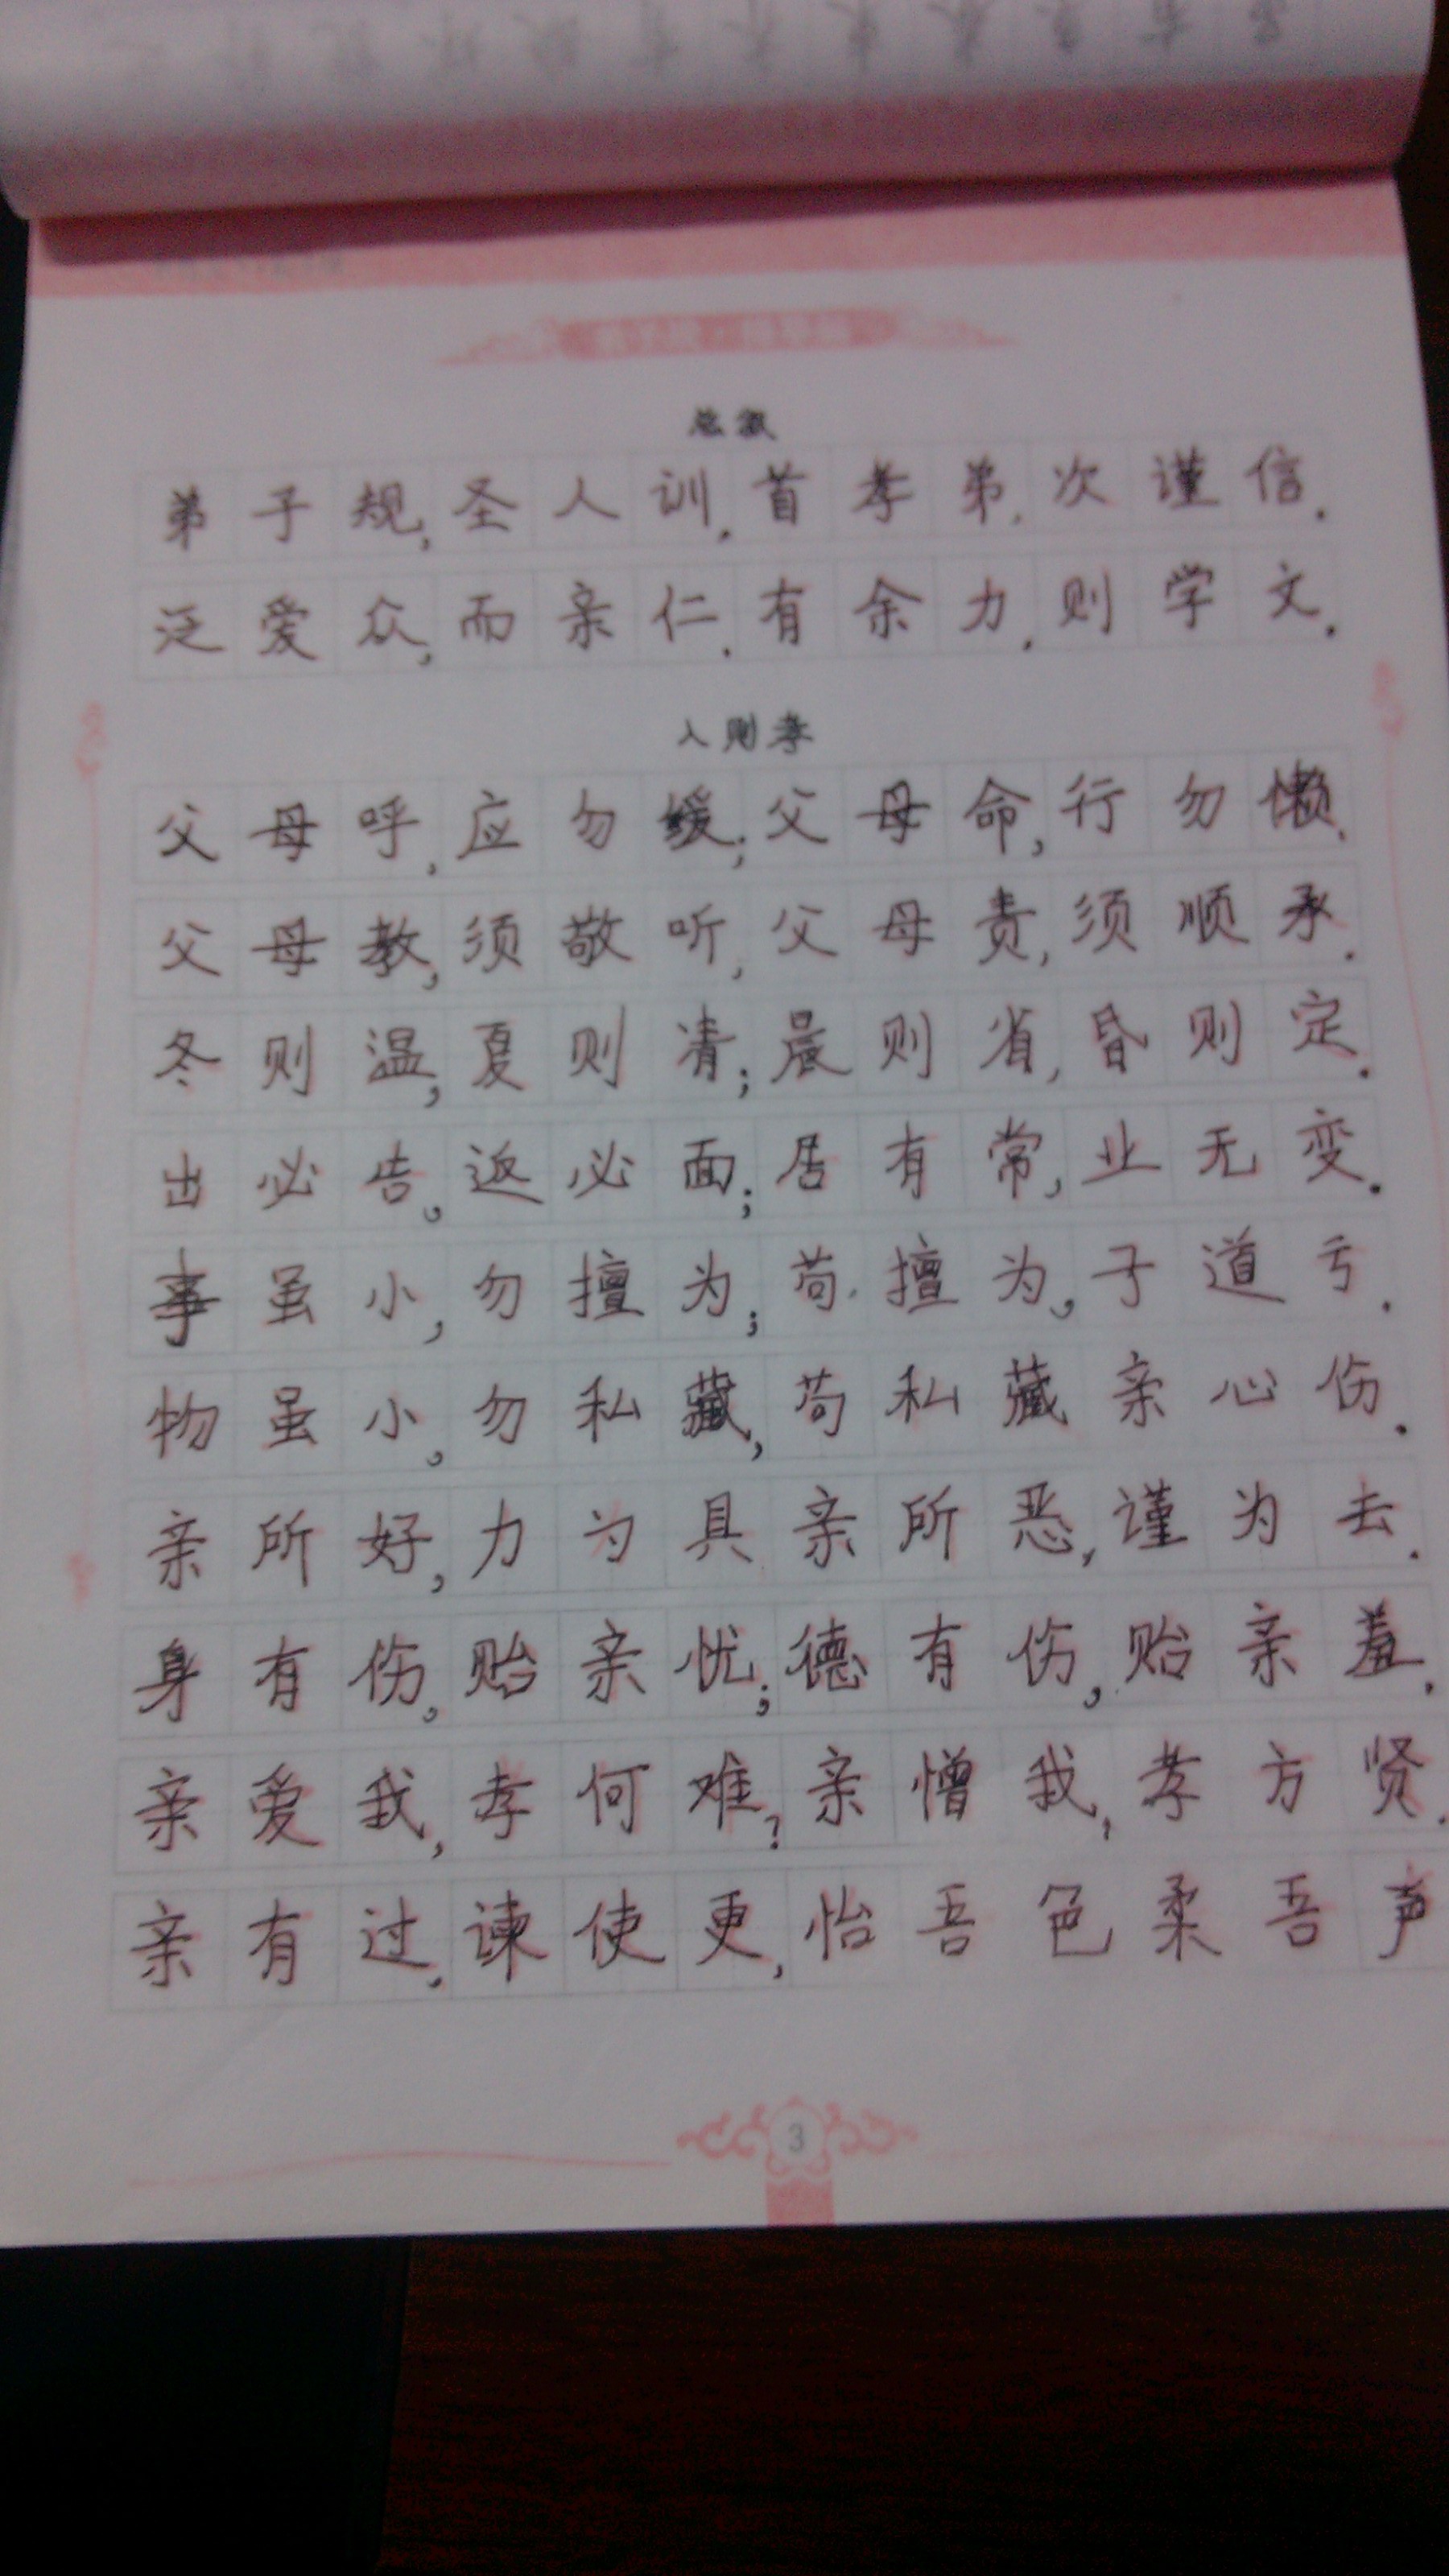 总叙
弟子规,圣人训.首孝弟,次谨信.
泛爱众,而亲仁.有余力.则学文.
入则孝
父母呼,应勿缓;父母命,行勿懒.
父母教,须敬听,父母责,须顺承.
冬则温,夏则凊;晨则省,昏则定.
出必告。返必面;居有常,业无变.
事虽小,勿擅为;苟擅为。子道亏.
物虽小。勿私藏,苟私藏亲心伤.
亲所好,力为具亲所恶,谨为去.
身有伤。贻亲忧;德有伤,贻亲羞.
亲爱我,孝何难?亲憎我,孝方贤.
亲有过.谏使更,怡吾色柔吾声
3